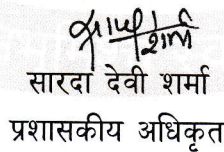 सारदा देवी शर्मा
प्रशासकीय अधिकृत